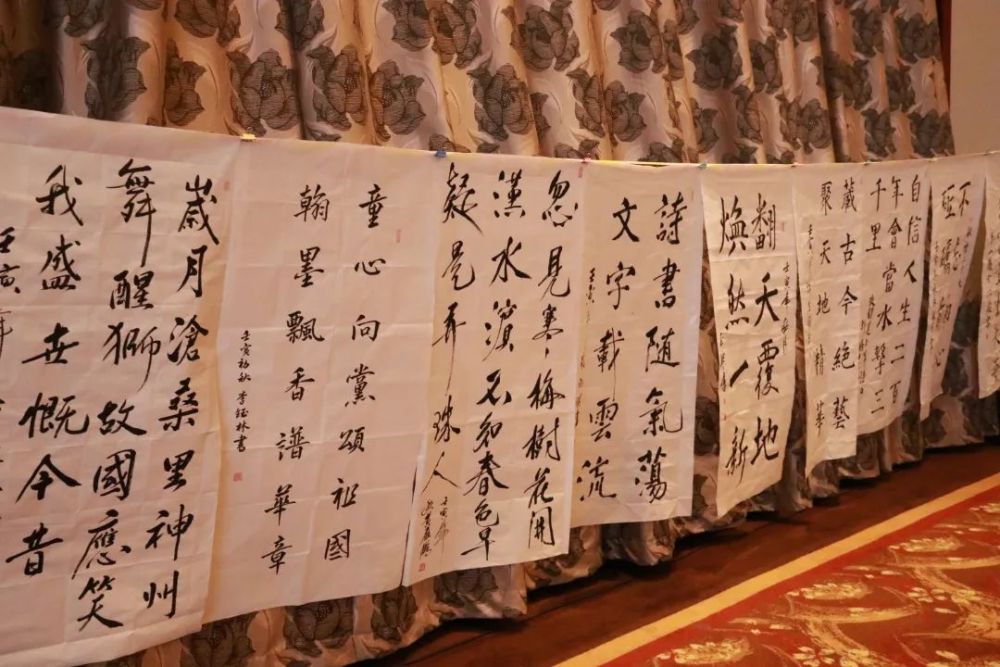 歲月滄桑里神州
舞醒獅故國應笑
我盛世慨今昔
壬寅
童心向黨頌祖國
翰墨飄香譜華章
壬寅初秋 李鈺林書
忽見寒梅樹花開
漢水濱不知春色早
疑是弄珠人
詩書隨氣蕩
文字載雲流
翻天覆地
煥然一新
藏古今絕藝
聚天地精華
自信人生二百
年會當水擊三
千里